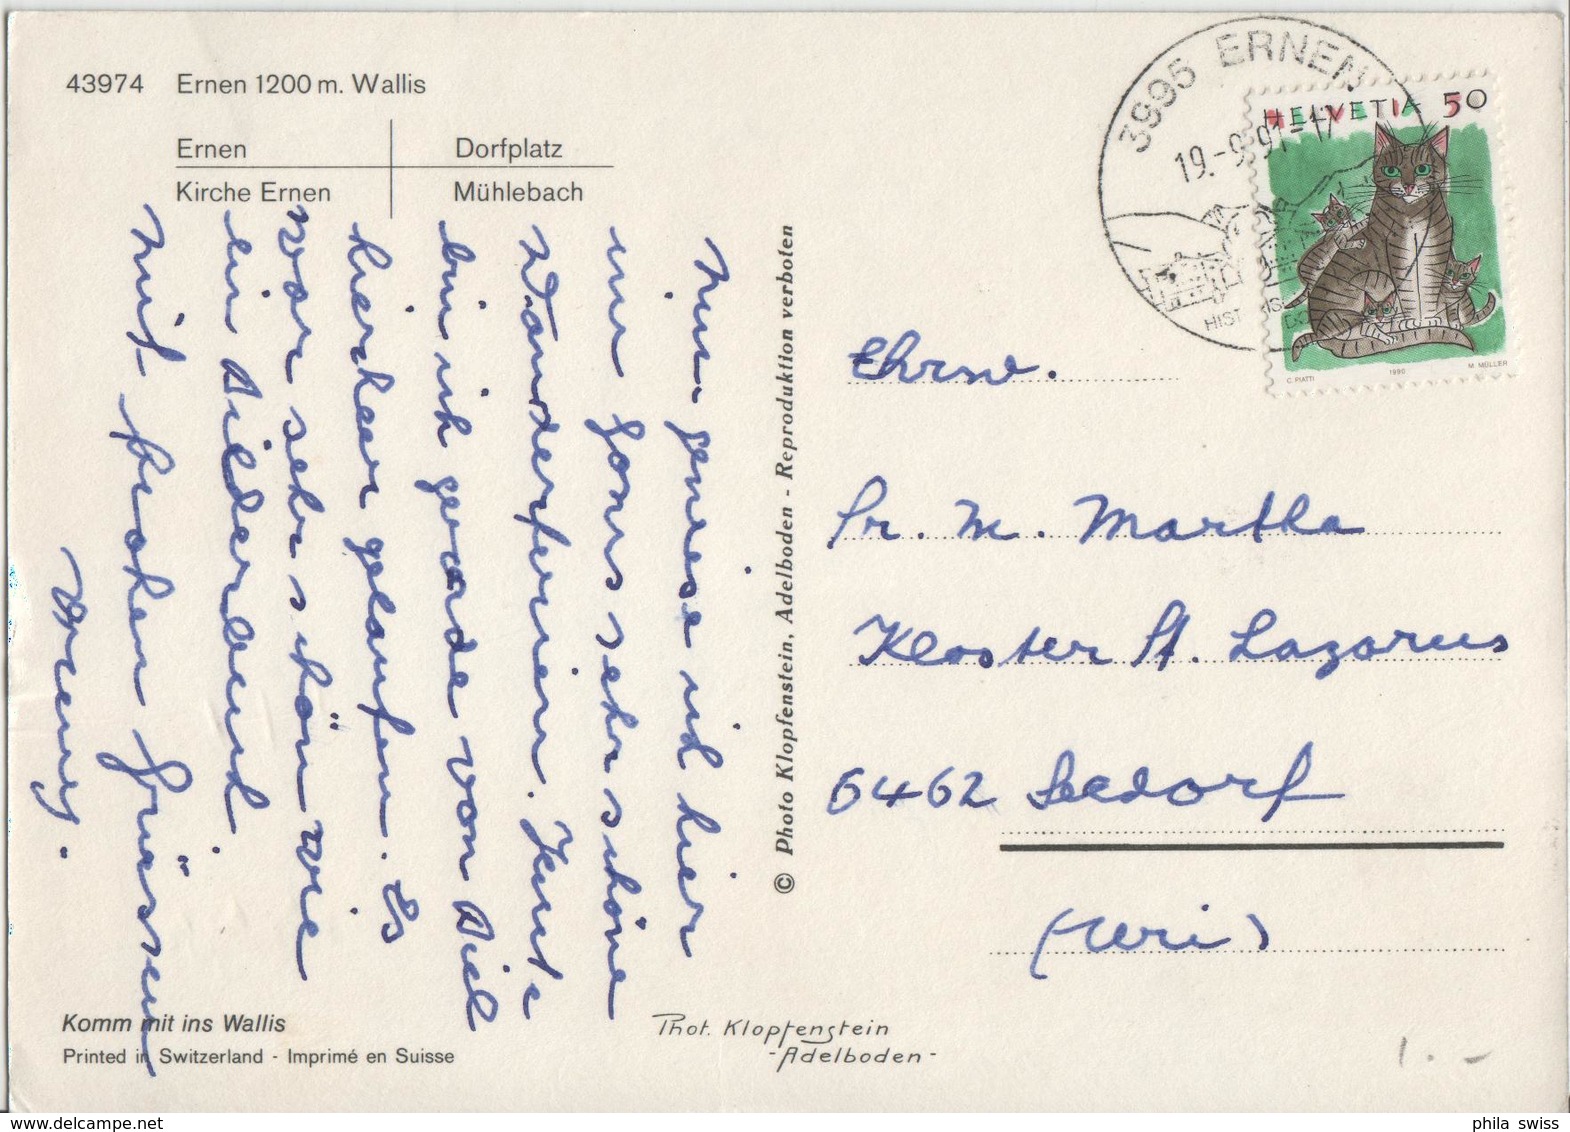 43974 Ernen 1200 m. Wallis
Ernen Dorfplatz
Kirche Ernen Mühlebach
3995 ERNEN
19.-9.91-17
HIST
HELVETIA 50
C. PIATTI 1990 M. MÜLLER
Nun geniese ich hier
nur Gons sehr schöne
Wanderferien. Heute
bin ich gerade von Biel
hierher gelaufen. Es
war sehr schön wie
ein Bilderbuch.
Mit frohen Grüssen
© Photo Klopfenstein, Adelboden - Reproduktion verboten
Ehrw.
Sr. M. Martha
Kloster St. Lazarus
6462 Seedorf
(Uri)
Komm mit ins Wallis
Printed in Switzerland - Imprimé en Suisse
Phot. Klopfenstein
-Adelboden-
1.-
phila swiss